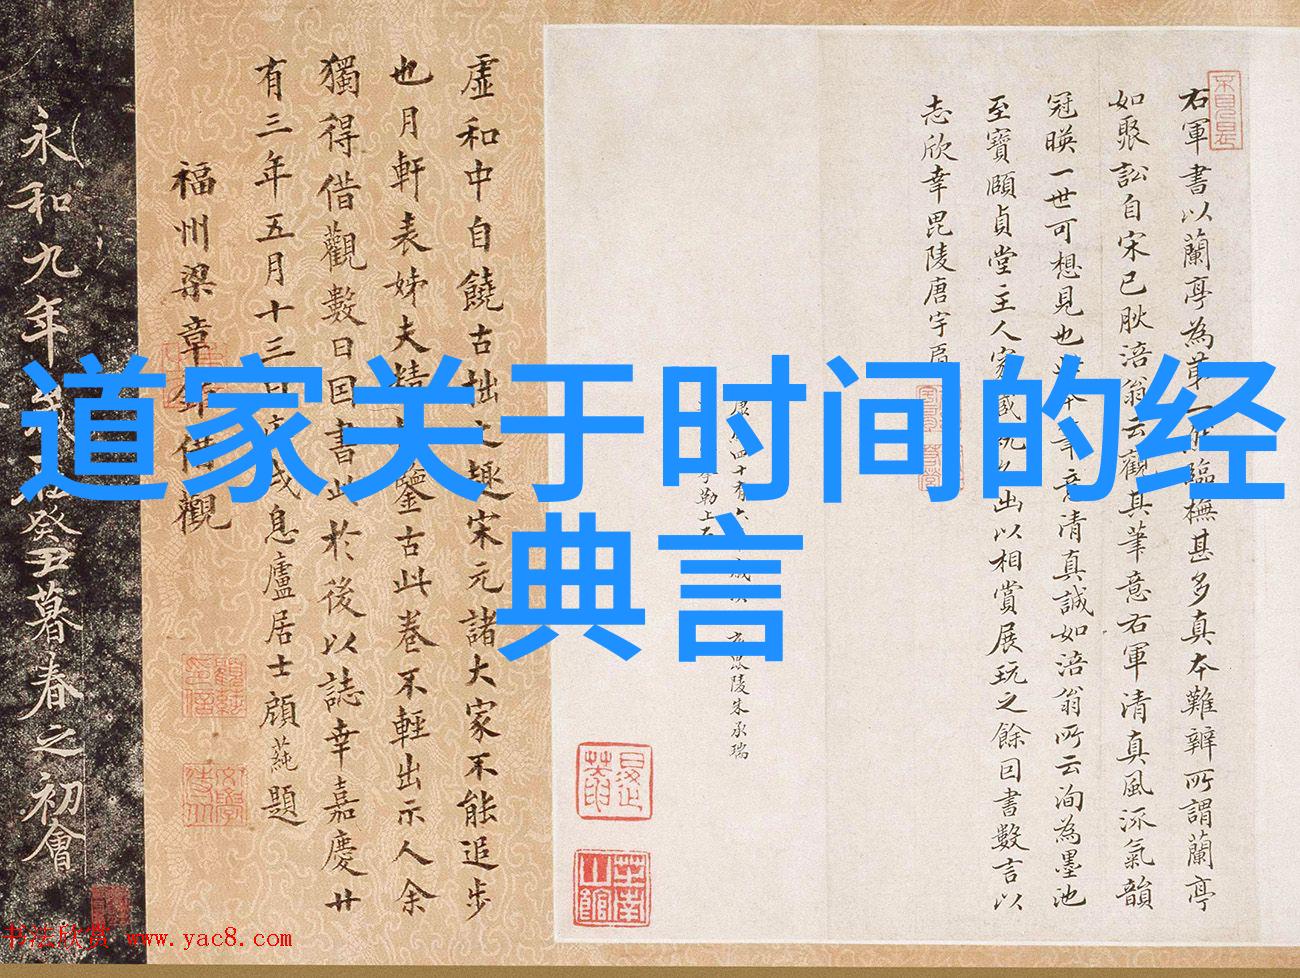 道家关于时间的经
典言
右軍書以蘭亭為第一
臨橅甚多真本難辨所謂蘭亭
如聚訟自宋已耿涪翁云觀其筆意右軍清真風流氣韻
冠暎一世可想見也
筆意清真誠如涪翁所云洵為墨池
至寶頤貞堂主人家藏
出以相賞展玩之餘因書數言以
志欣幸毘陵唐宇肩
毘陵朱承瑞
虛和中自饒古拙之趣宋元諸大家不能追步
也月軒表姊夫精
鑒古此卷不輕出示人余
獨得借觀數日因書此於後以誌幸嘉慶廿
有三年五月十三日
息廬居士顧蒓題
福州梁章鉅借觀
永和九年
癸丑暮春之初會
书法欣赏 www.yac8.com